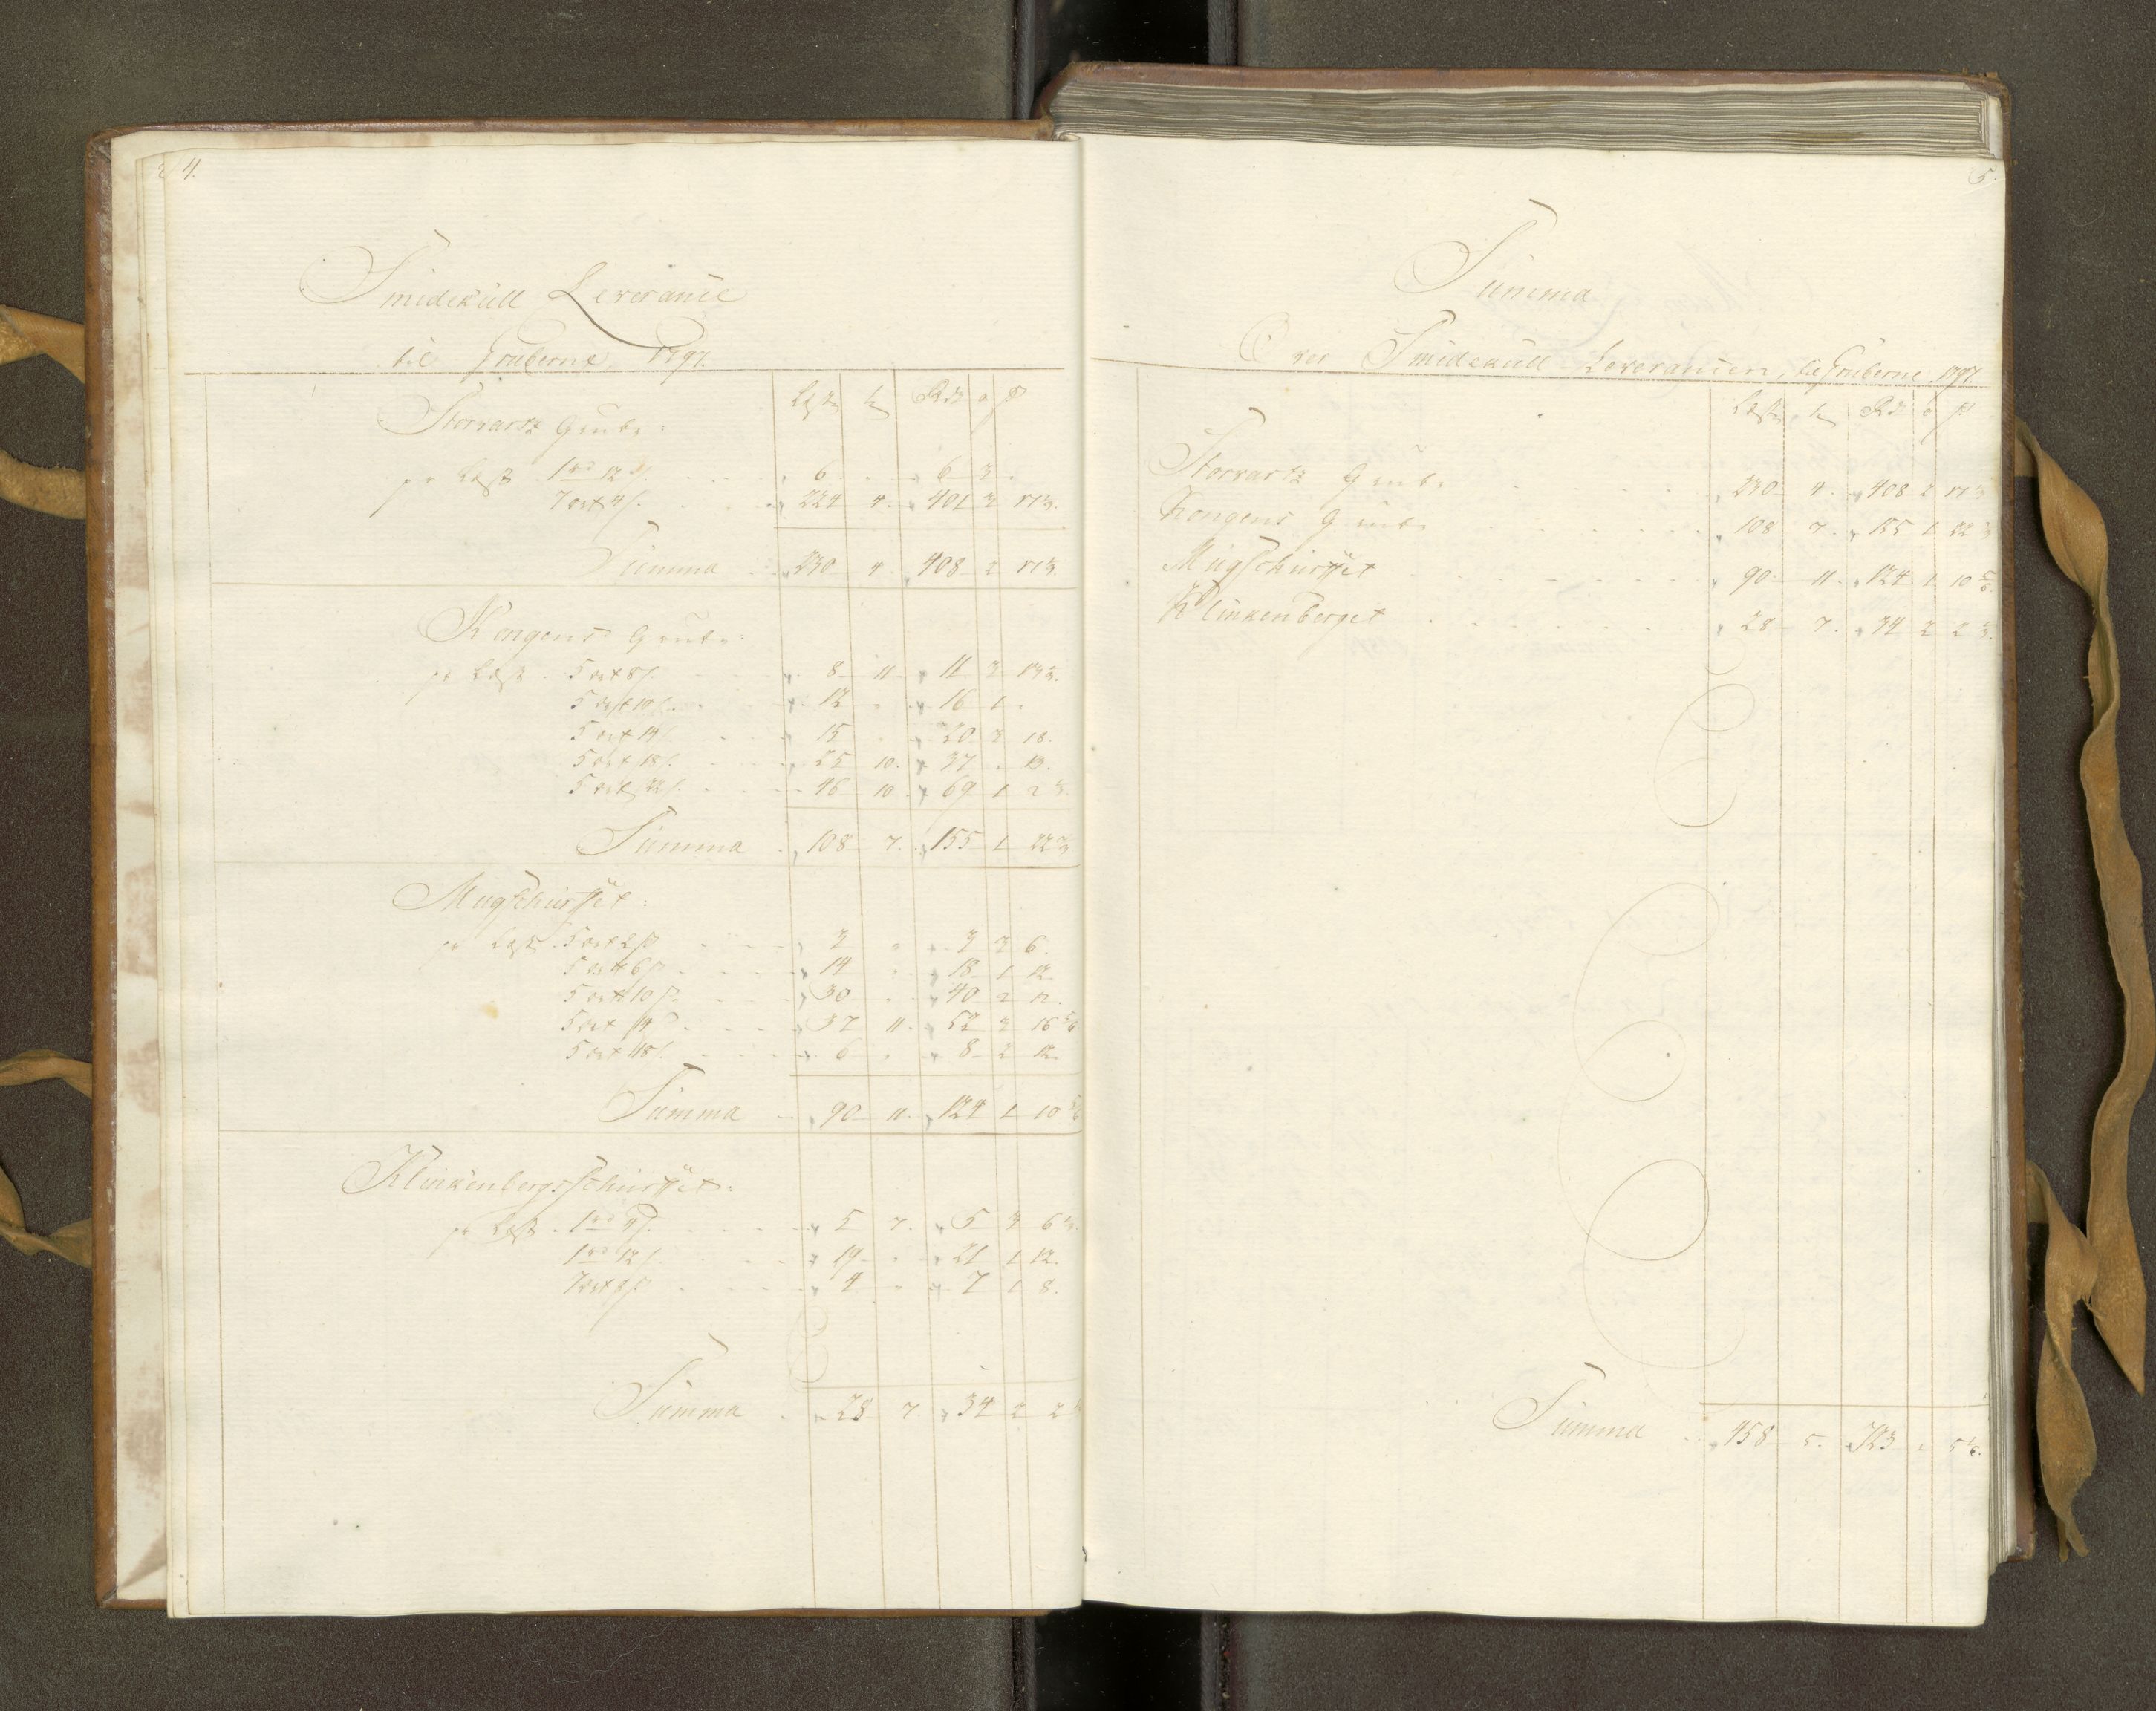 4.
Smidekull Leverance
til Gruberne 1797.
Læst t Rd o ß
Storvartz Grube:
pr Læst 1 rd 12 ß. 6 " 6 3 "
7 ort 4 ß. 224 4. 401 3 17⅓.
Summa 230 4. 408 2 17⅓.
Kongens Grube:
pr Læst 5 ort 8 ß. 8 11. 11 3 13⅓.
5 ort 10 ß. 12 " 16 1 "
5 ort 14 ß. 15 " 20 3 18.
5 ort 18 ß. 25 10. 37 " 13.
5 ort 22 ß. 46 10. 69 1 2⅓.
Summa 108 7. 155 1 22⅔
Mugschurffet:
pr Læst 5 ort 2 ß 3 " 3 3 6.
5 ort 6 ß. 14 " 18 1 12.
5 ort 10 ß. 30 " 40 2 12.
5 ort 14 ß. 37 11. 52 3 16⅚
5 ort 18 ß. 6 " 8 2 12.
Summa 90 11. 124 1 10⅚
Klinkenbergsschurffet:
pr Læst 1 rd 4 ß. 5 7. 5 3 6⅓.
1 rd 12 ß. 19 " 21 1 12.
7 ort 8 ß 4 " 7 1 8.
Summa 28 7. 34 2 2
5.
Summa
Over Smidekull-Leverancen, til Gruberne 1797.
Læst t Rd o ß
Storvartz Grube 230 4. 408 2 17⅓
Kongens Grube 108 7. 155 1 22⅔
Mugschurffet 90 11. 124 1 10⅚
Klinkenberget 28 7. 34 2 2⅓.
Summa 458 5. 723 " 5⅙.